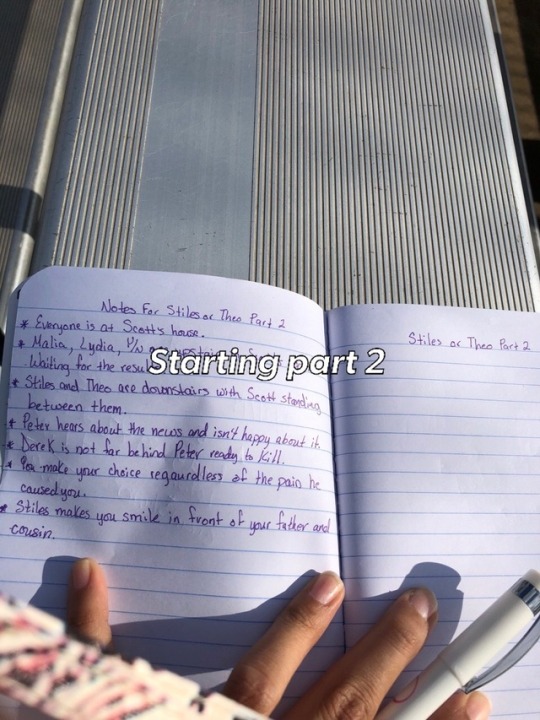 Notes For Stiles or Theo Part 2
* Everyone is at Scott's house.
* Malia, Lydia, Y/N
Waiting for the
* Stiles and Theo are downstairs with Scott standing
between them.
* Peter hears about the news and isn't happy about it.
* Derek is not far behind Peter ready to kill.
* You make your choice regaurdless of the pain he
caused you.
* Stiles makes you smile in front of your father and
cousin.
Stiles or Theo Part 2
Starting part 2